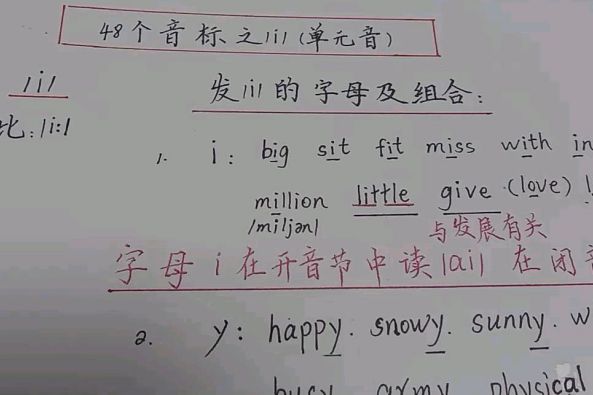 48个音标之/i/(单元音)
/i/
发/i/的字母及组合:
比:/i:/
1. i: big sit fit miss with in
million little give (love)
/miljən/ 与发展有关
字母i在开音节中读/ai/ 在闭
2. y: happy. snowy. sunny. w
busy army physical